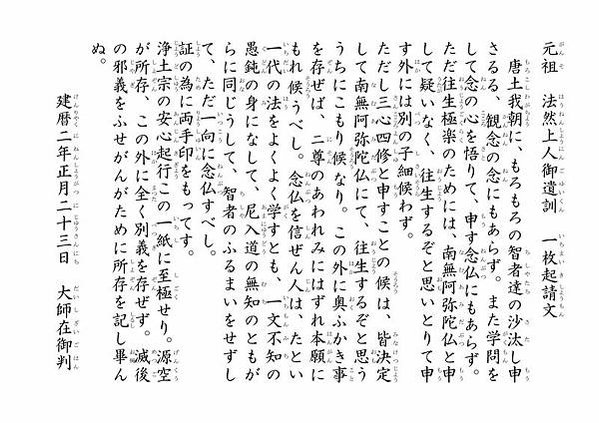 元祖　法然上人御遺訓　一枚起請文
唐土我朝に、もろもろの智者達の沙汰し申
さるる、観念の念にもあらず。また学問を
して念の心を悟りて、申す念仏にもあらず。
ただ往生極楽のためには、南無阿弥陀仏と申
して疑いなく、往生するぞと思いとりて申
す外には別の子細候わず。
ただし三心四修と申すことの候は、皆決定
して南無阿弥陀仏にて、往生するぞと思う
うちにこもり候なり。この外に奥ふかき事
を存ぜば、二尊のあわれみにはずれ本願に
もれ候うべし。念仏を信ぜん人は、たとい
一代の法をよくよく学すとも、一文不知の
愚鈍の身になして、尼入道の無知のともが
らに同じうして、智者のふるまいをせずし
て、ただ一向に念仏すべし。
証の為に両手印をもってす。
浄土宗の安心起行この一紙に至極せり。源空
が所存、この外に全く別義を存ぜず。滅後
の邪義をふせがんがために所存を記し畢ん
ぬ。
建暦二年正月二十三日　大師在御判